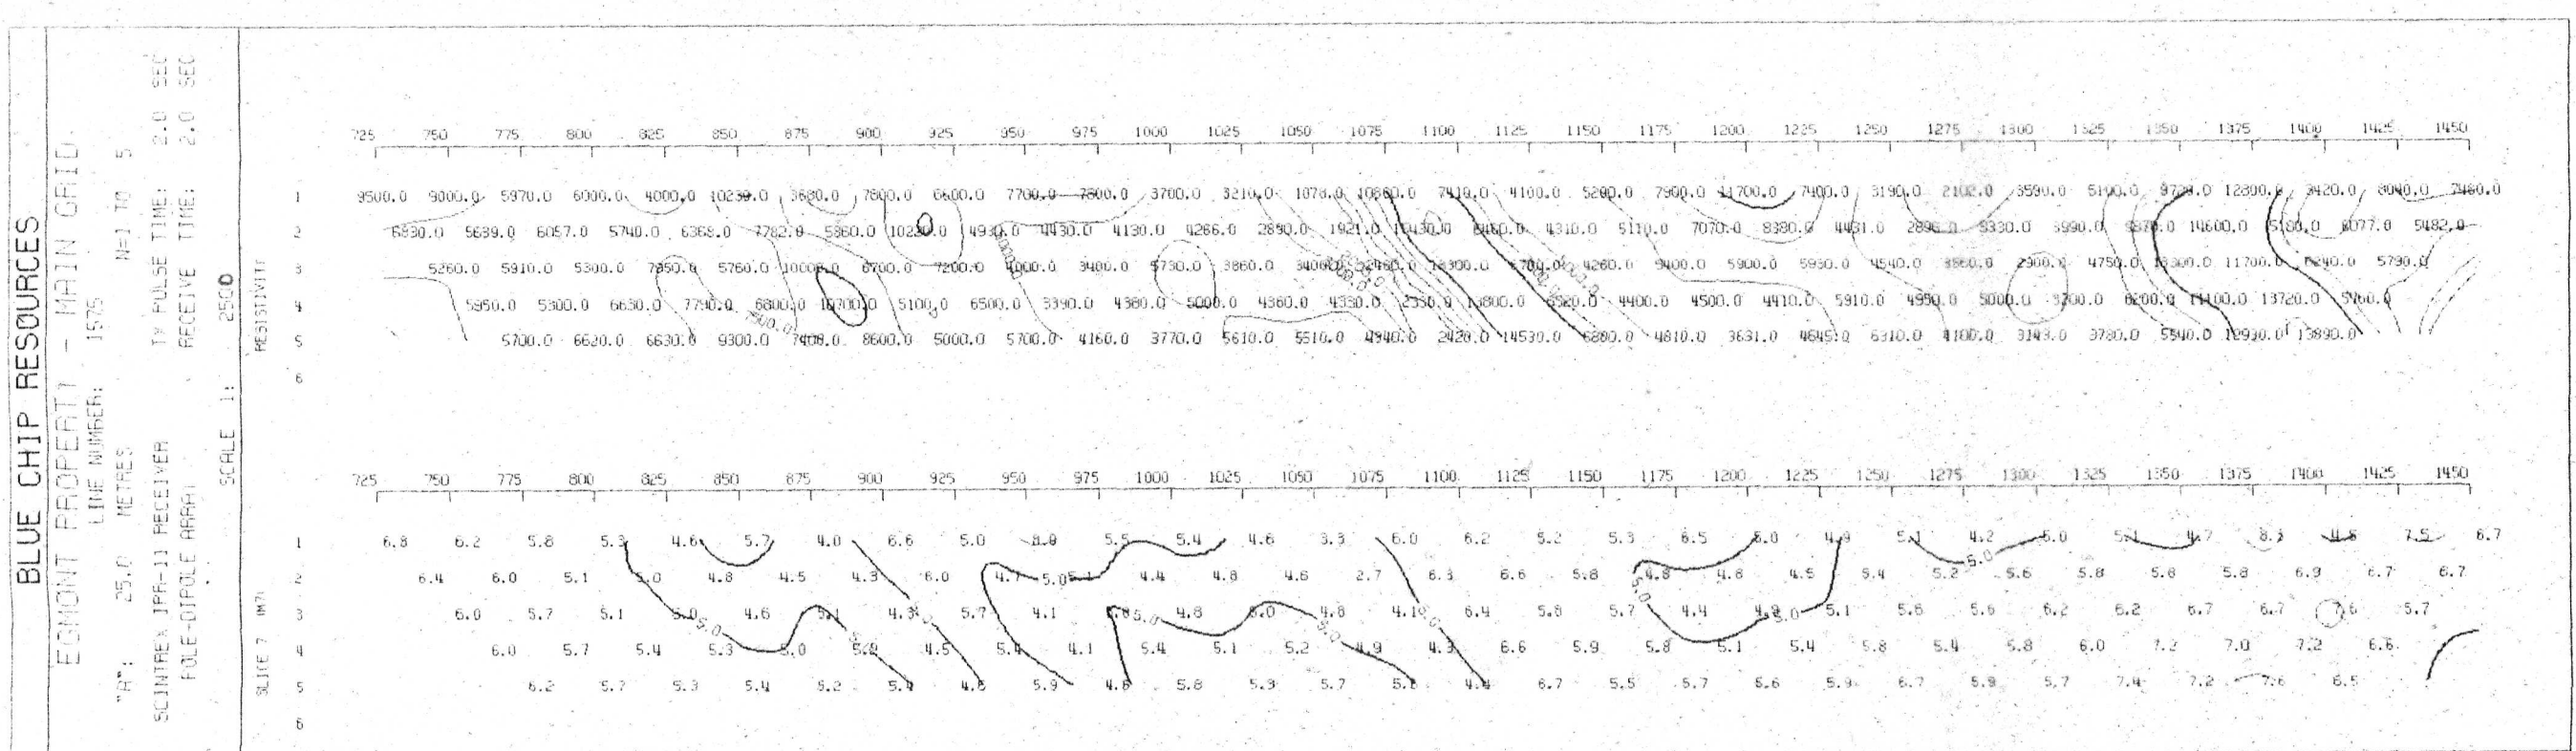 BLUE CHIP RESOURCES
EGMONT PROPERTY - MAIN GRID
LINE NUMBER: 1575
"A": 25.0 METRES N=1 TO 5
SCINTREX IPR-11 RECEIVER TX PULSE TIME: 2.0 SEC
POLE-DIPOLE ARRAY RECEIVE TIME: 2.0 SEC
SCALE 1: 2500
RESISTIVITY
725 750 775 800 825 850 875 900 925 950 975 1000 1025 1050 1075 1100 1125 1150 1175 1200 1225 1250 1275 1300 1325 1350 1375 1400 1425 1450
1 9500.0 9000.0 5970.0 6000.0 4000.0 10230.0 3680.0 7800.0 6600.0 7700.0 7800.0 3700.0 3210.0 1078.0 7410.0 4100.0 5200.0 7900.0 11700.0 7400.0 3190.0 2102.0 3590.0 5100.0 12800.0 7460.0
2 6830.0 5639.0 6057.0 5740.0 6368.0 7782.0 5360.0 4430.0 4130.0 4266.0 2890.0 4310.0 5110.0 7070.0 8380.0 4431.0 14600.0 6077.0 5482.0
3 5260.0 5910.0 5300.0 7350.0 5760.0 6700.0 7200.0 4000.0 3400.0 5730.0 3860.0 4260.0 5900.0 5930.0 4540.0 2900.0 4750.0 11700.0 5790.0
4 5950.0 5300.0 6630.0 7790.0 6800.0 10700.0 5100.0 6500.0 3390.0 4380.0 5000.0 4360.0 4330.0 2330.0 13800.0 4400.0 4500.0 4410.0 5910.0 4990.0 5000.0 3200.0 6200.0 11100.0 13720.0
5 5700.0 6620.0 6630.0 9300.0 7400.0 8600.0 5000.0 5700.0 4160.0 3770.0 5610.0 5510.0 4940.0 2420.0 14530.0 6880.0 4810.0 3631.0 4645.0 6310.0 4100.0 3143.0 3780.0 5540.0 12930.0 13890.0
6
SLICE 7 (M7)
725 750 775 800 825 850 875 900 925 950 975 1000 1025 1050 1075 1100 1125 1150 1175 1200 1225 1250 1275 1300 1325 1350 1375 1400 1425 1450
1 6.8 6.2 5.8 5.3 4.6 5.7 4.0 6.6 5.0 5.5 5.4 4.6 3.3 6.0 6.2 5.2 5.3 6.5 5.0 4.9 5.1 4.2 5.0 5.1 4.7 8.3 7.5 6.7
2 6.4 6.0 5.1 5.0 4.8 4.5 4.3 6.0 4.7 5.0 5.1 4.4 4.8 4.6 2.7 6.3 6.6 5.8 4.8 4.8 4.5 5.4 5.2 5.0 5.6 5.8 5.8 5.8 6.9 6.7 6.7
3 6.0 5.7 5.1 5.0 4.6 5.1 4.3 5.7 4.1 5.0 4.8 5.0 4.8 4.1 6.4 5.8 5.7 4.4 4.9 5.0 5.1 5.6 5.6 6.2 6.2 6.7 6.7 7.6 5.7
4 6.0 5.7 5.4 5.3 5.0 4.5 5.4 4.1 5.4 5.1 5.2 4.9 4.3 6.6 5.9 5.8 5.1 5.4 5.8 5.4 5.8 6.0 7.2 7.0 7.2 6.6
5 6.2 5.7 5.3 5.4 5.2 5.4 4.8 5.9 4.8 5.8 5.9 5.7 5.8 4.4 6.7 5.5 5.7 6.6 5.9 6.7 5.9 5.7 7.4 7.2 7.6 6.5
6